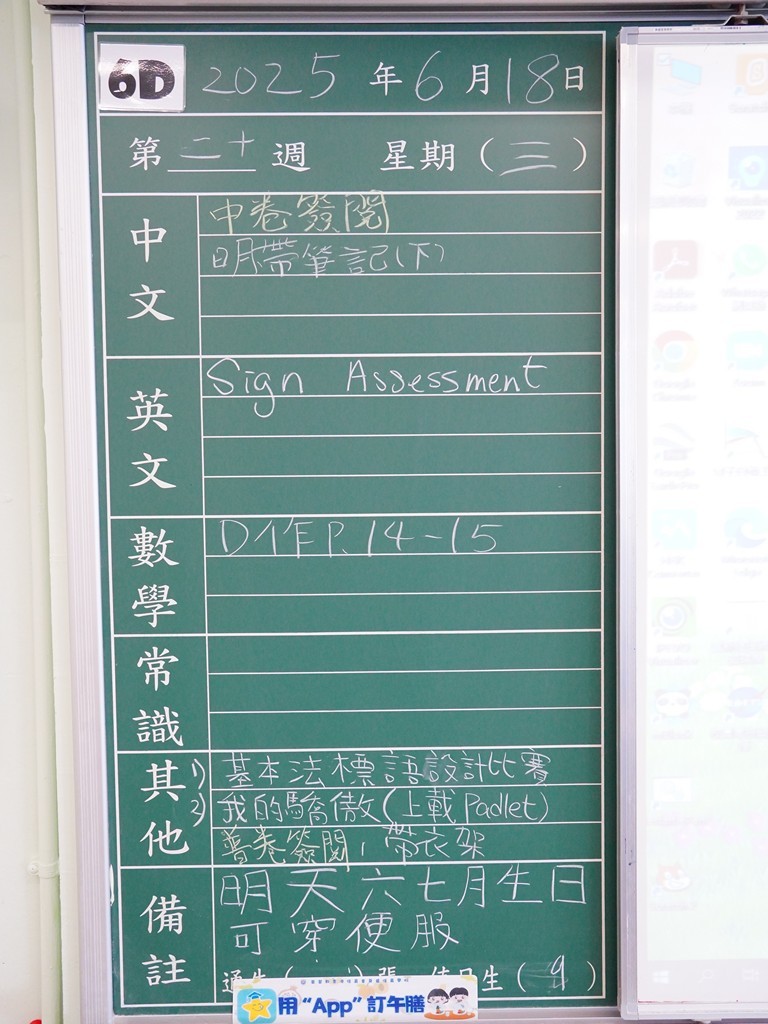 6D 2025年6月18日
第二十週 星期（三）
中文
中卷簽閱
明帶筆記(下)
英文
Sign Assessment
數學
D作E P.14-15
常識
其他
1) 基本法標語設計比賽
2) 我的驕傲(上載Padlet)
普卷簽閱，帶衣架
備註
明天六七月生日
可穿便服
值日生(9)
用“App”訂午膳